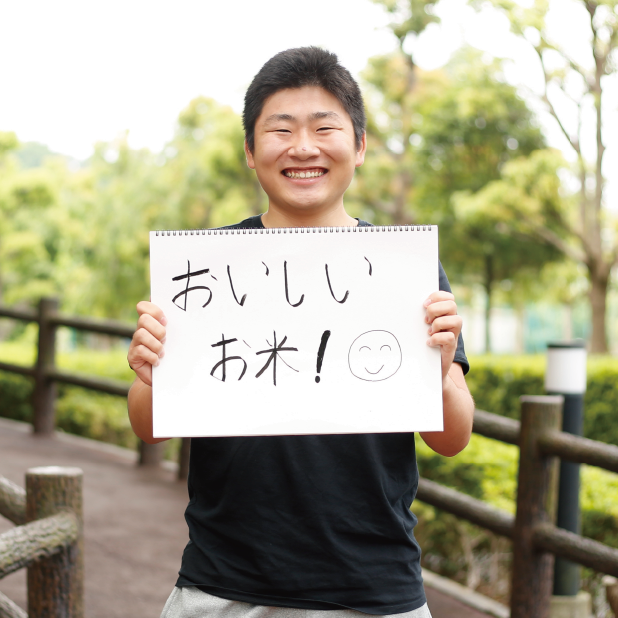 おいしい
お米!